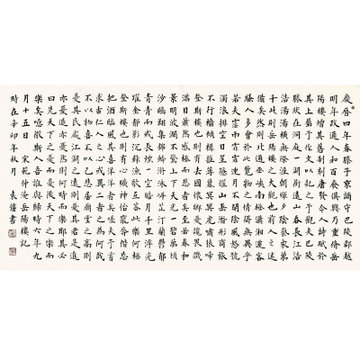 慶曆四年春滕子京謫守巴陵郡越
明年政通人和百廢俱興乃重修岳
陽樓增其舊制刻唐賢今人詩賦於
其上屬予作文以記之予觀夫巴陵
勝狀在洞庭一湖銜遠山吞長江浩
浩湯湯橫無際涯朝暉夕陰氣象萬
千此則岳陽樓之大觀也前人之述
備矣然則北通巫峽南極瀟湘遷客
騷人多會於此覽物之情得無異乎
若夫霪雨霏霏連月不開陰風怒號
濁浪排空日星隱曜山岳潛形商旅
不行檣傾楫摧薄暮冥冥虎嘯猿啼
登斯樓也則有去國懷鄉憂讒畏譏
滿目蕭然感極而悲者矣至若春和
景明波瀾不驚上下天光一碧萬頃
沙鷗翔集錦鱗游泳岸芷汀蘭鬱鬱
青青而或長煙一空皓月千里浮光
耀金靜影沉璧漁歌互答此樂何極
登斯樓也則有心曠神怡寵辱偕忘
把酒臨風其喜洋洋者矣嗟夫予嘗
求古仁人之心或異二者之為何哉
不以物喜不以己悲居廟堂之高則
憂其民處江湖之遠則憂其君是進
亦憂退亦憂然則何時而樂耶其必
曰先天下之憂而憂後天下之樂而
樂矣噫微斯人吾誰與歸時六年九
月十五日 宋范仲淹岳陽樓記
時在辛卯年秋月 袁 書